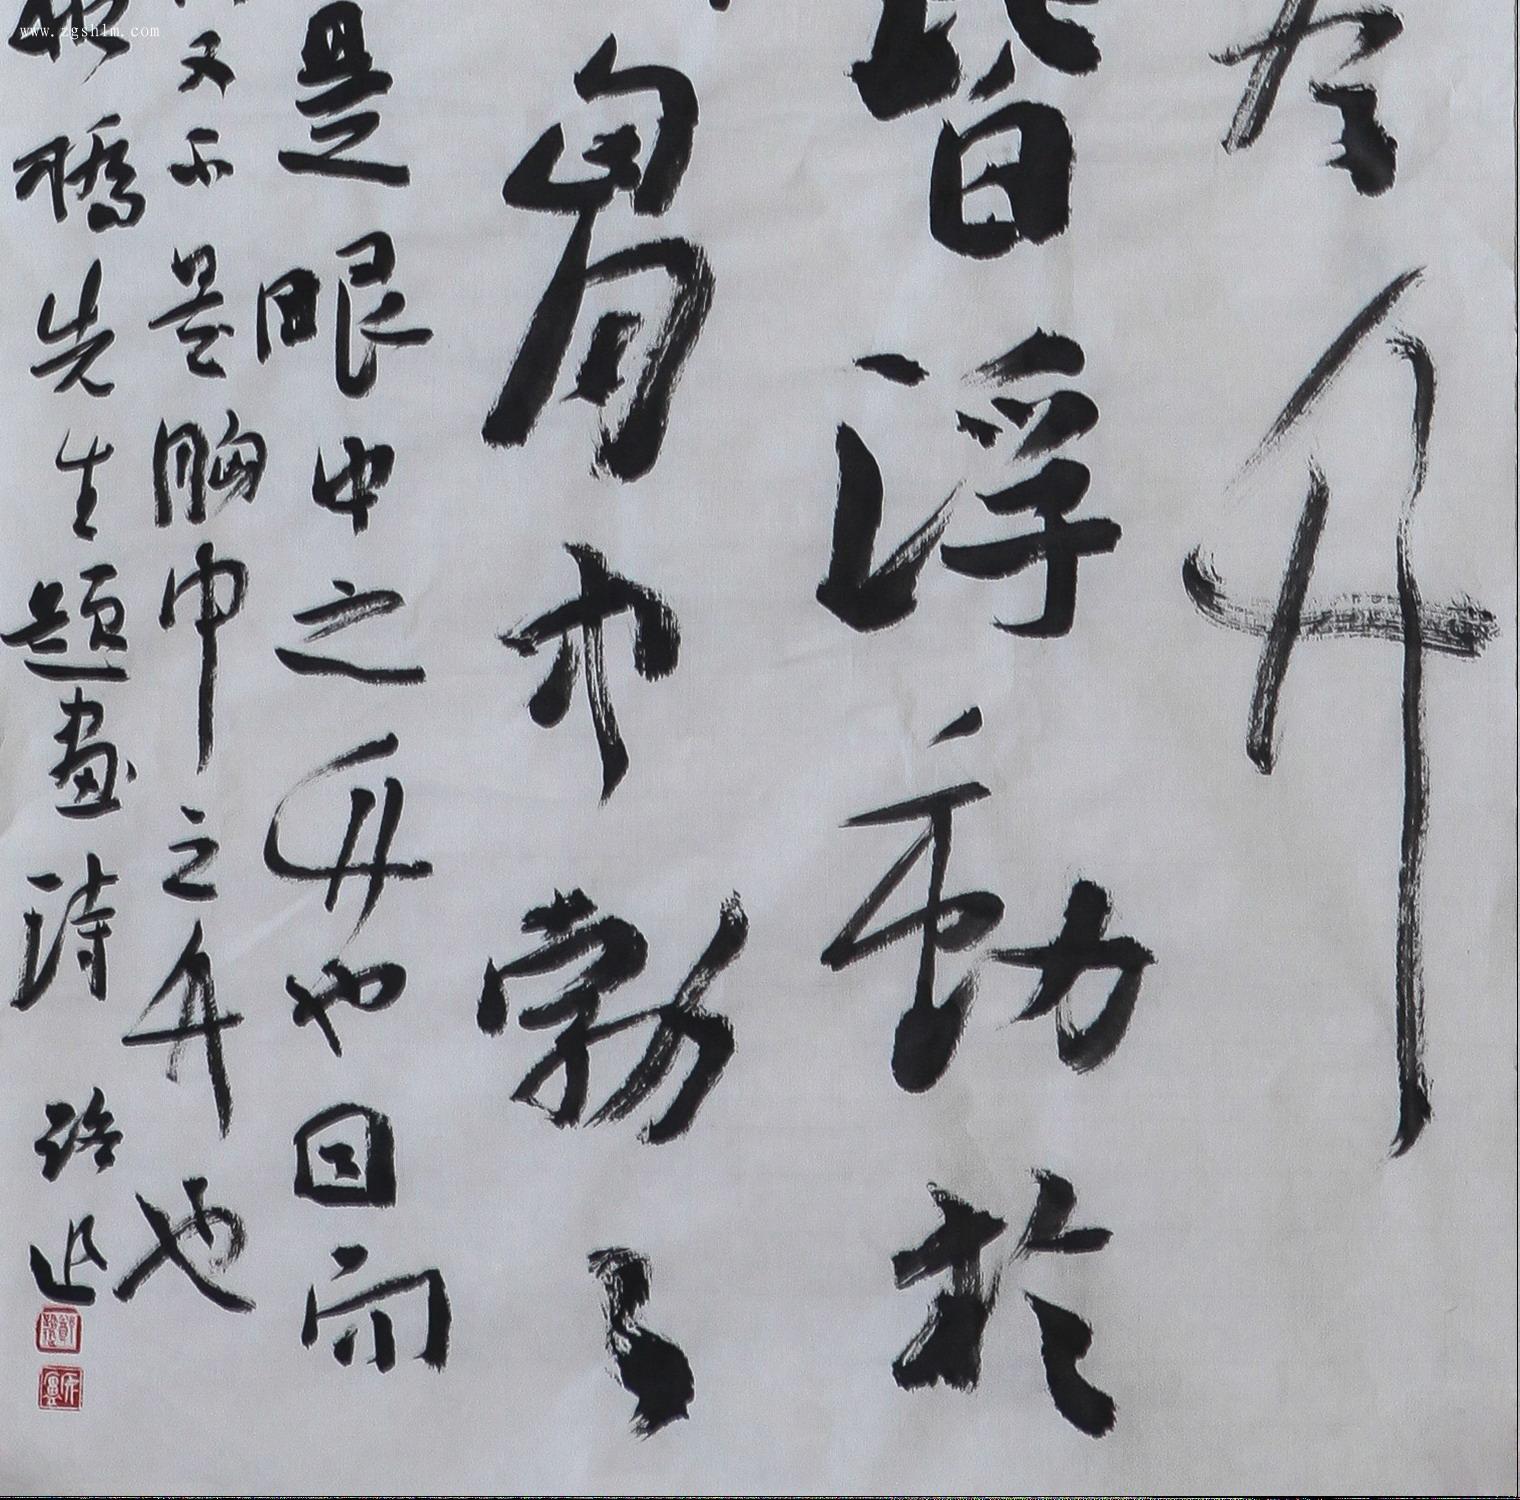 竹
皆浮動於
胷中勃々
是眼中之竹也因而
又不是胸中之竹也
板橋先生題畫詩
www.zgshlm.com